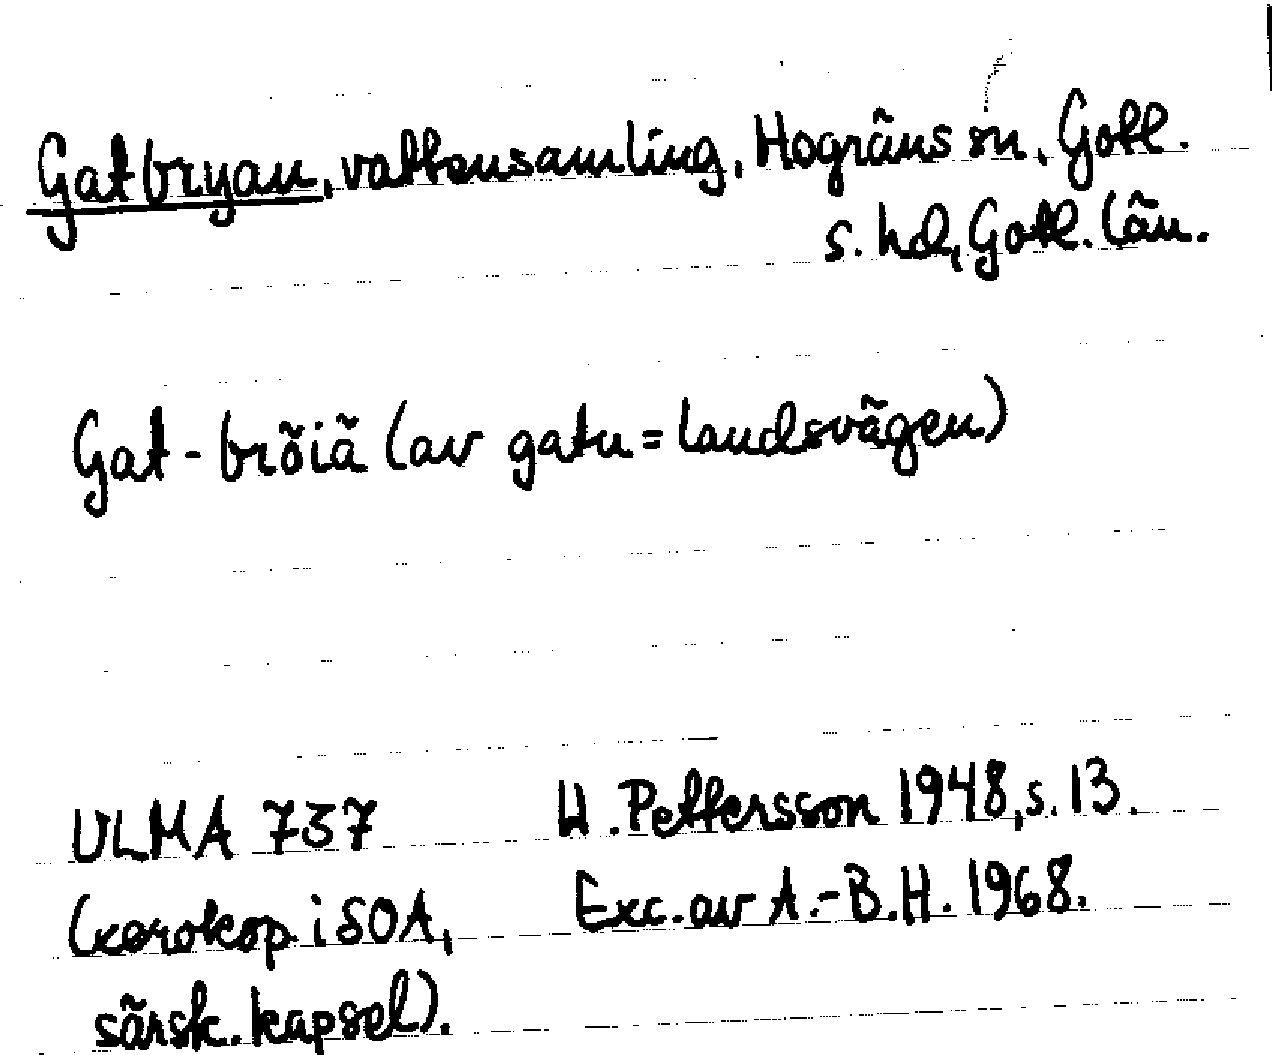 Gatbryan, vattensamling, Hogräns sn, Gotl.
s. hd, Gotl. län.
Gat-bröiä (av gatu = landsvägen)
ULMA 737 H. Pettersson 1948, s. 13.
(xerokop. i SOA, Exc. av A.-B.H. 1968.
särsk. kapsel).